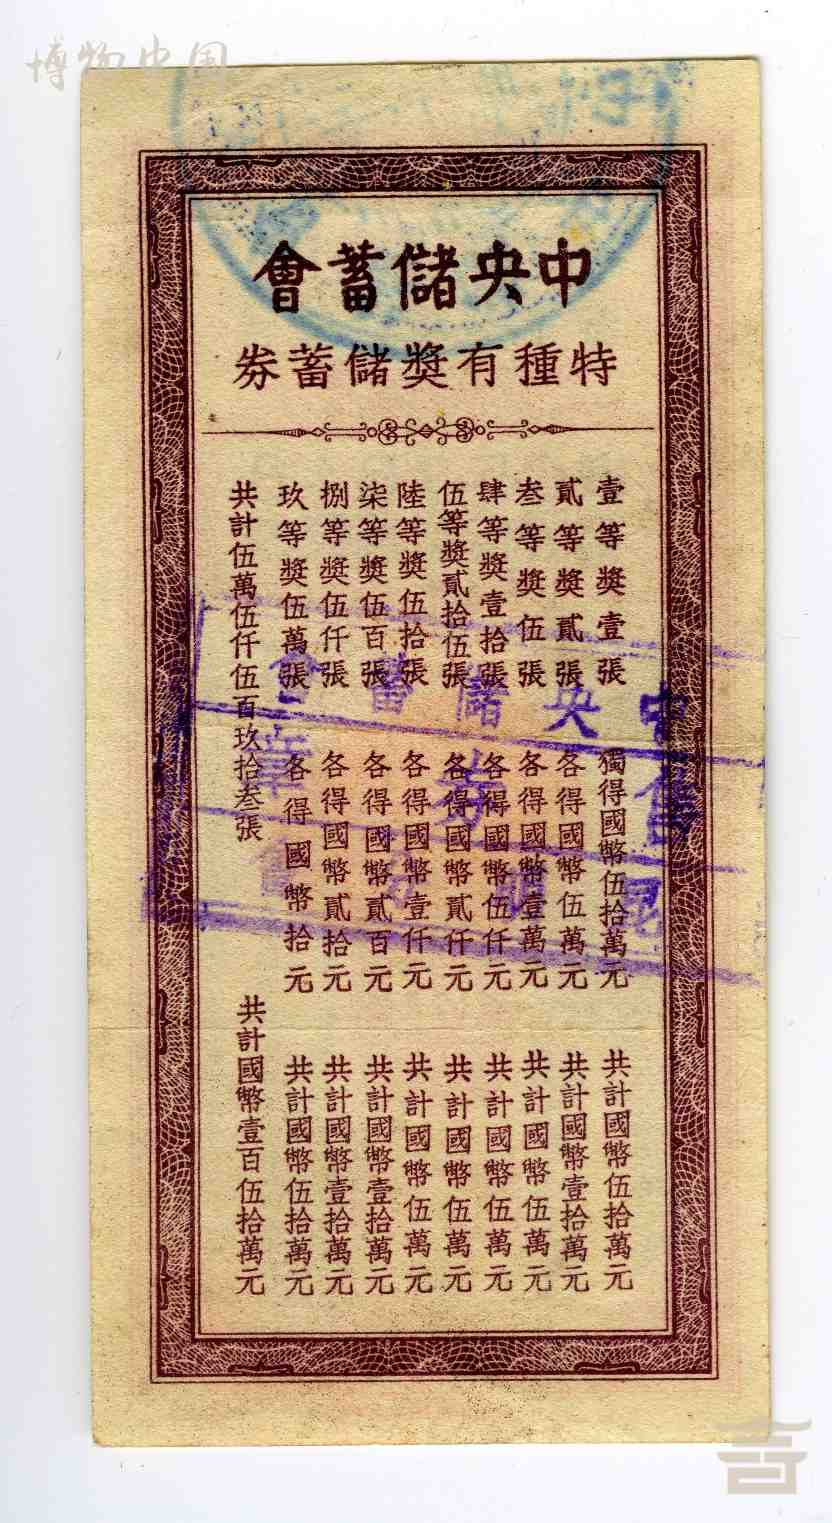 博物中国
中央儲蓄會
特種有獎儲蓄券
壹等獎壹張 獨得國幣伍拾萬元 共計國幣伍拾萬元
貳等獎貳張 各得國幣伍萬元 共計國幣壹拾萬元
叁等獎伍張 各得國幣壹萬元 共計國幣伍萬元
肆等獎壹拾張 各得國幣伍仟元 共計國幣伍萬元
伍等獎貳拾伍張 各得國幣貳仟元 共計國幣伍萬元
陸等獎伍拾張 各得國幣壹仟元 共計國幣伍萬元
柒等獎伍百張 各得國幣貳百元 共計國幣壹拾萬元
捌等獎伍仟張 各得國幣貳拾元 共計國幣壹拾萬元
玖等獎伍萬張 各得國幣拾元 共計國幣伍拾萬元
共計伍萬伍仟伍百玖拾叁張 共計國幣壹百伍拾萬元
中央儲蓄會